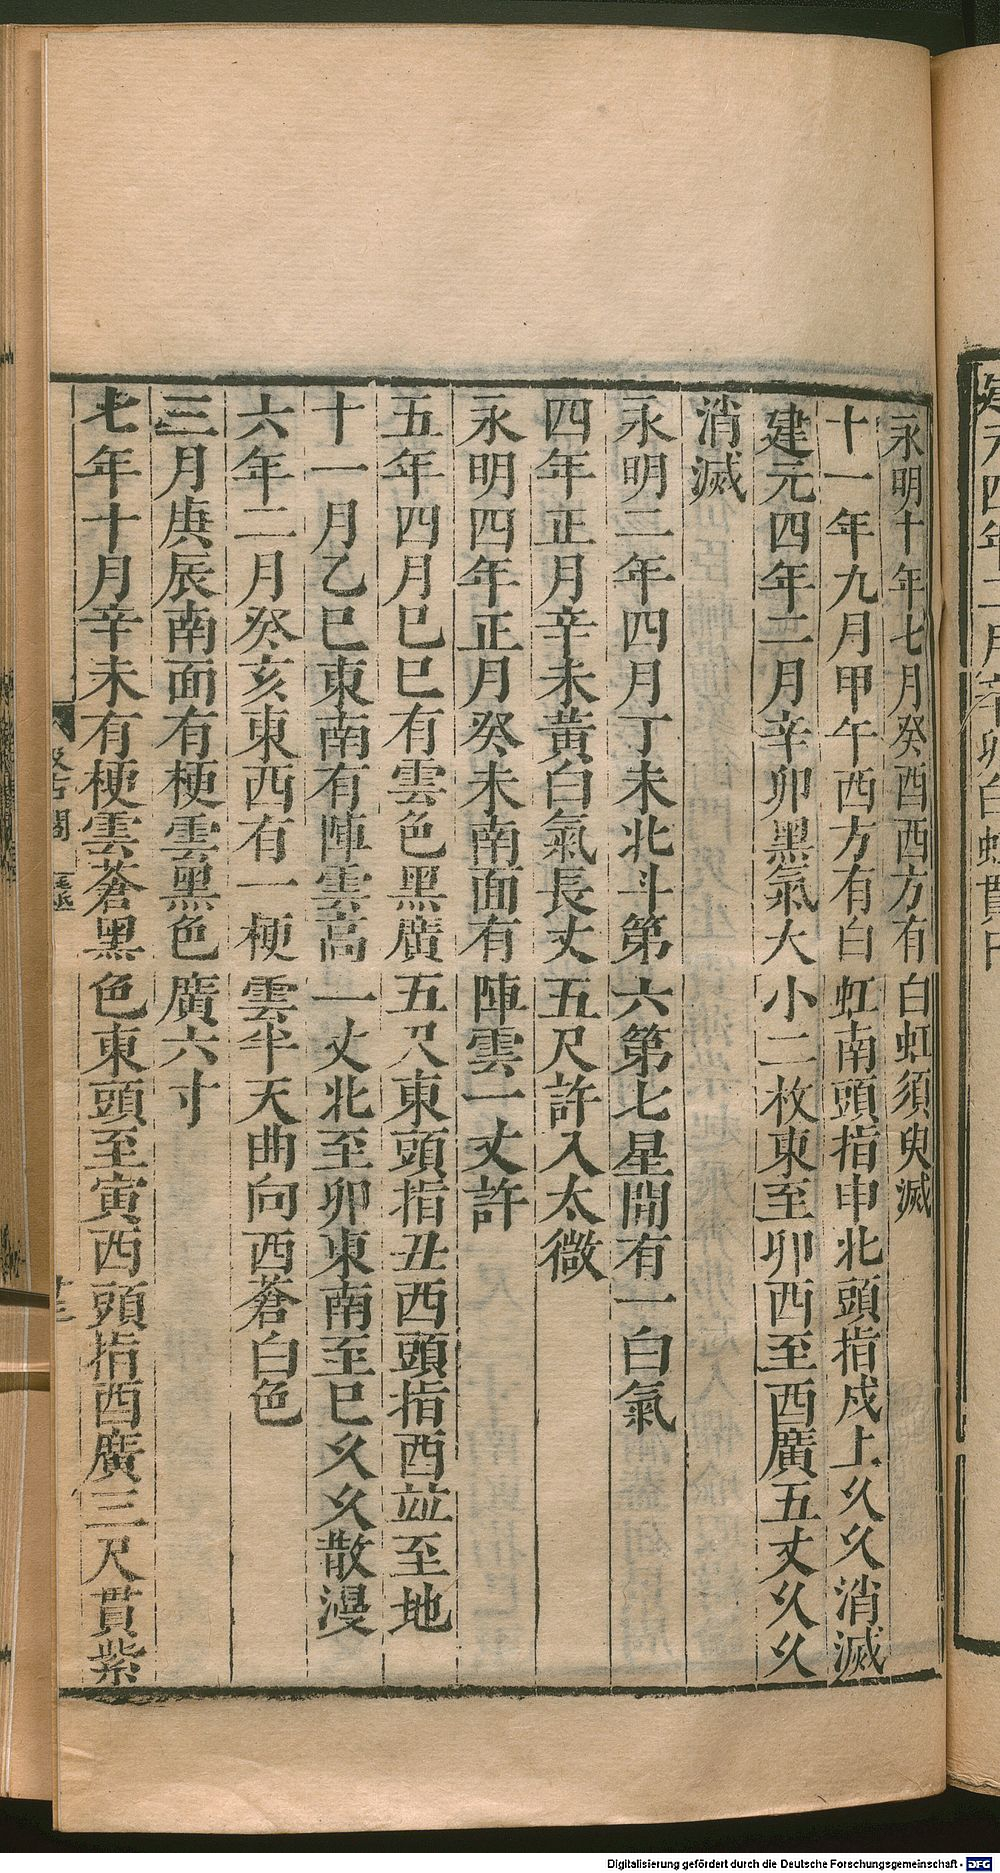 永明十年七月癸酉西方有白虹須臾滅
十一年九月甲午西方有白虹南頭指申北頭指戍上久久消滅
建元四年二月辛卯黑氣大小二枚東至卯西至酉廣五丈久久
消滅
永明二年四月丁未北斗第六第七星閒有一白氣
四年正月辛未黃白氣長丈五尺許入太微
永明四年正月癸未南面有陣雲一丈許
五年四月己巳有雲色黑廣五尺東頭指丑西頭指酉竝至地
十一月乙巳東南有陣雲高一丈北至卯東南至巳久久散漫
六年二月癸亥東西有一梗雲半天曲向西蒼白色
三月庚辰南面有梗雲黑色廣六寸
七年十月辛未有梗雲蒼黑色東頭至寅西頭指酉廣三尺貫紫
Digitalisierung gefördert durch die Deutsche Forschungsgemeinschaft - DFG